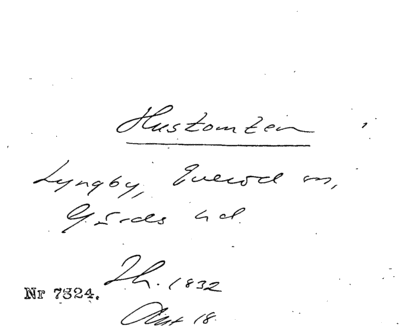 Hustomten
Lyngby, Everöd sn,
Gärds hd.
Th. 1832
Nr 7324.
18